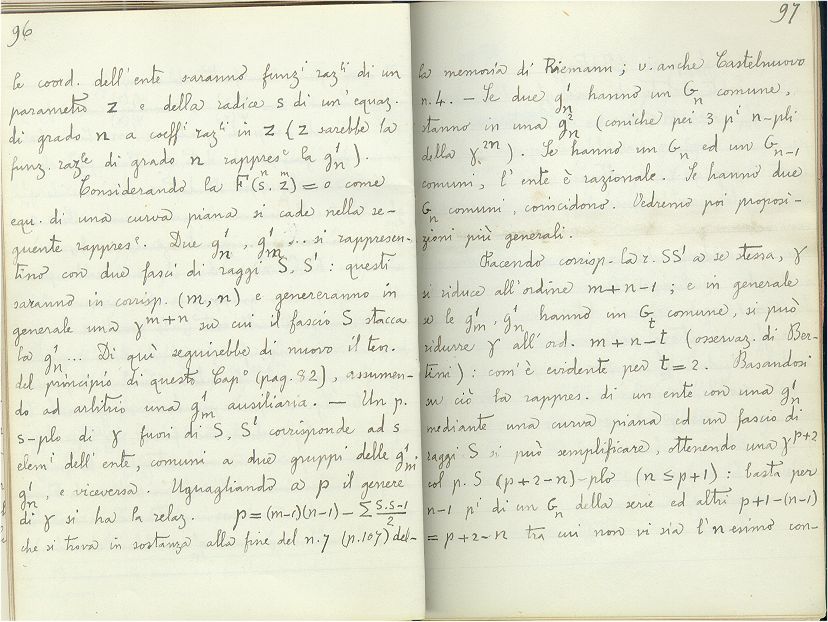 96
le coord. dell'ente saranno funz.i raz.li di un
parametro z e della radice s di un'equaz.
di grado n a coeff.i raz.li in z (z sarebbe la
funz. raz.le di grado n rappres.e la g¹ₙ).
Considerando la F(sⁿ, zᵐ) = 0 come
equ. di una curva piana si cade nella se-
guente rappres.e. Due g¹ₙ, g¹ₘ ... si rappresen-
tino con due fasci di raggi S, S' : questi
saranno in corrisp. (m, n) e genereranno in
generale una γᵐ⁺ⁿ su cui il fascio S stacca
la g¹ₙ ... Di quì seguirebbe di nuovo il teor.
del principio di questo Cap.o (pag. 82), assumen-
do ad arbitrio una g¹ₘ ausiliaria. — Un p.
s-plo di γ fuori di S, S' corrisponde ad s
elem.i dell'ente, comuni a due gruppi delle g¹ₘ,
g¹ₙ, e viceversa. Uguagliando a p il genere
di γ si ha la relaz. p = (m-1)(n-1) - Σ s.s-1/2
che si trova in sostanza alla fine del n. 7 (p. 107) del-
97
la memoria di Riemann ; v. anche Castelnuovo
n. 4. — Se due g¹ₙ hanno un Gₙ comune,
stanno in una g²ₙ (coniche pei 3 p.i n-pli
della γ²ⁿ). Se hanno un Gₙ ed un Gₙ₋₁
comuni, l'ente è razionale. Se hanno due
Gₙ comuni, coincidono. Vedremo poi proposi-
zioni più generali.
Facendo corrisp. la r. SS' a se stessa, γ
si riduce all'ordine m+n-1 ; e in generale
se le g¹ₘ, g¹ₙ hanno un Gₜ comune, si può
ridurre γ all'ord. m+n-t (osservaz. di Ber-
tini) : com'è evidente per t=2. Basandosi
su ciò la rappres. di un ente con una g¹ₙ
mediante una curva piana ed un fascio di
raggi S si può semplificare, ottenendo una γᵖ⁺²
col p. S (p+2-n)-plo (n ≤ p+1) : basta per
n-1 p.i di un Gₙ della serie ed altri p+1-(n-1)
= p+2-n tra cui non vi sia l'n esimo con-